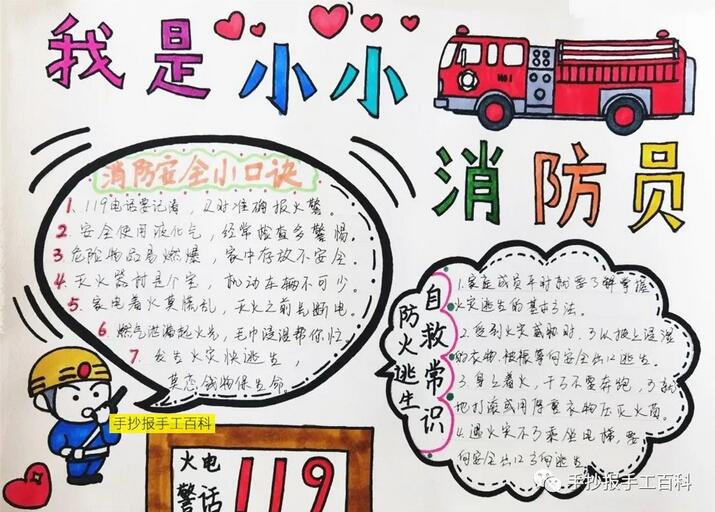 我是小小
消防员
消防安全小口诀
1、119电话要记清，及时准确报火警。
2、安全使用液化气，经常检查多警惕。
3、危险物品易燃爆，家中存放不安全。
4、灭火器材是个宝，机动车辆不可少。
5、家电着火莫慌乱，灭火之前先断电。
6、燃气泄漏起火气，毛巾浸湿帮你忙。
7、发生火灾快逃生，
莫恋钱物保生命
防火逃生
自救常识
1.家庭成员平时就要了解掌握
火灾逃生的基本方法。
2.受到火灾威胁时，可以披上浸湿
的衣物、被褥等向安全出口逃生。
3.身上着火，千万不要奔跑，可就
地打滚或用厚重衣物压灭火苗。
4.遇火灾不可乘坐电梯，要
向安全出口方向逃生。
手抄报手工百科
火电
警话
119
手抄报手工百科